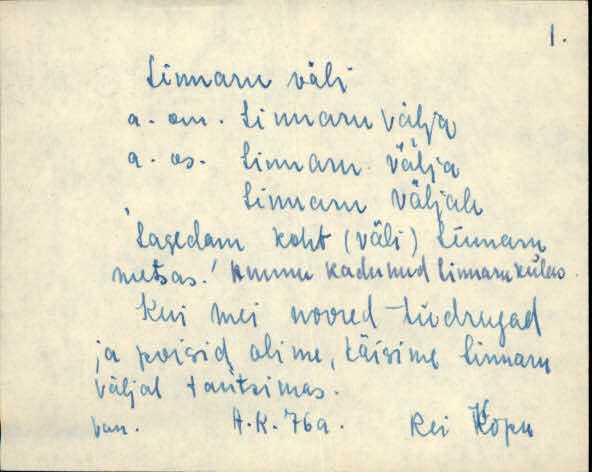 1.
Linnaru väli
a. om. Linnaru välja
a. os. Linnaru välja
Linnaru väljale
'Lagedam koht (väli) Linnaru
metsas.' Ammu kadunud Linnaru külas.
Kui mei noored tüdrugad
ja poisid olime, käisime Linnaru
väljal tantsimas.
van. A.K. 76a. Rei Kõpu